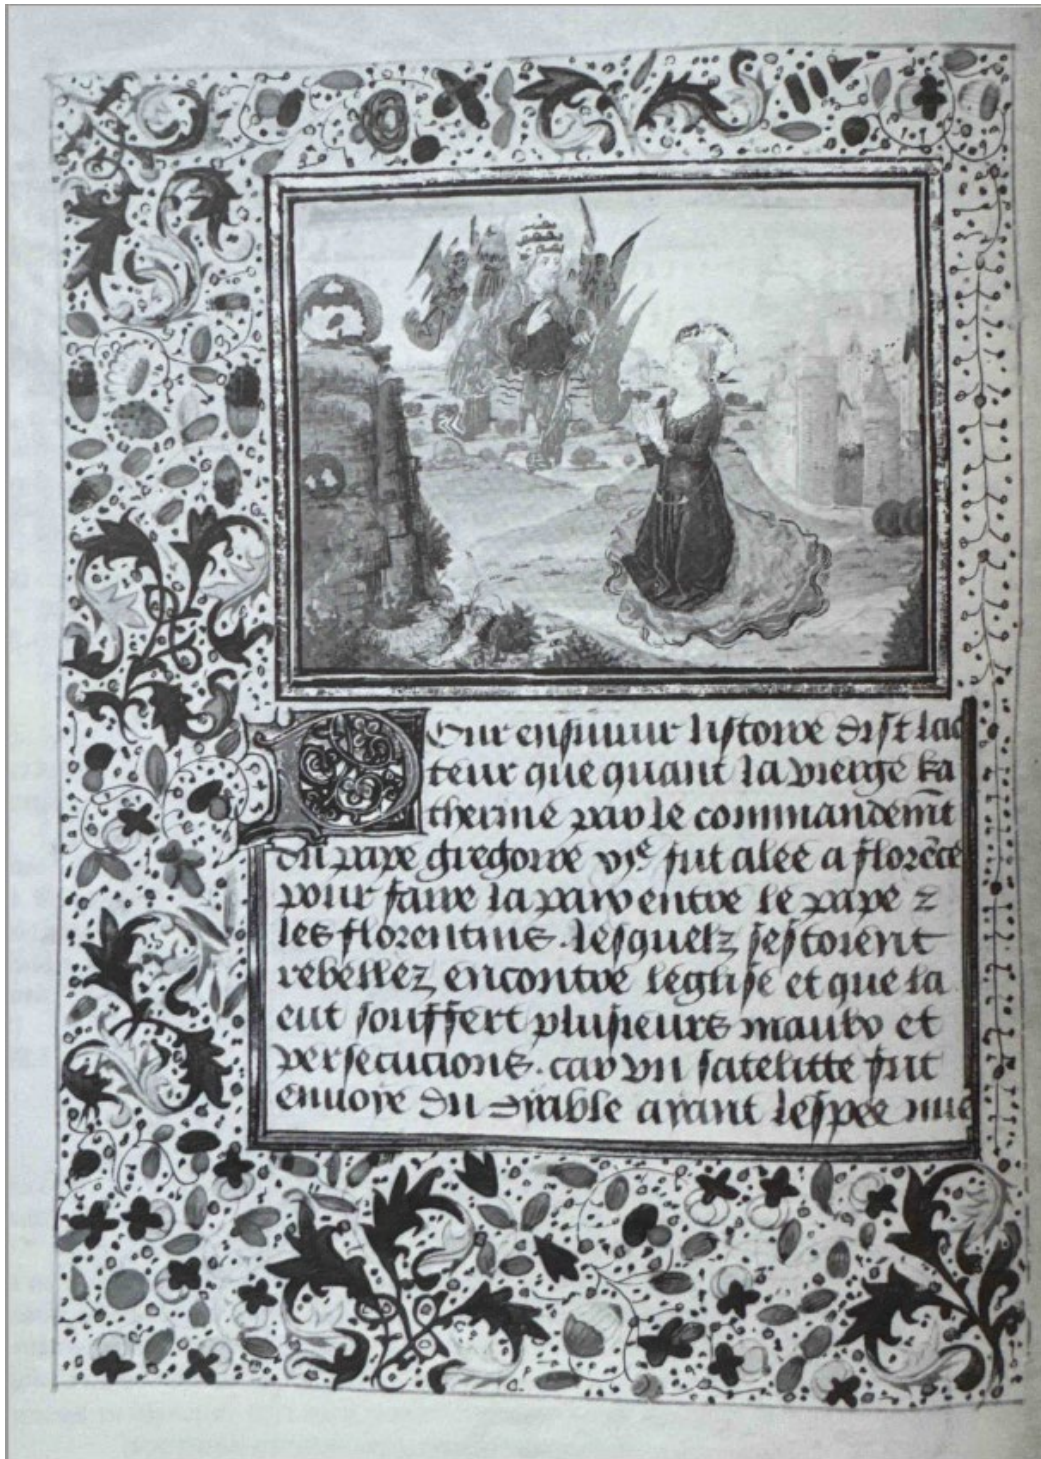 Pour ensuiuir listoire dist lac
teur que quant la vierge ka
therine par le commandemt̃
du pape gregoire vjᵉ fut alee a florẽce
pour faire la paix entre le pape ⁊
les florentins. lesquelz sestoient
rebellez encontre leglise et que la
eut souffert plusieurs maulx et
persecucions. car vn satelitte fut
enuoye du dyable ayant lespee nue